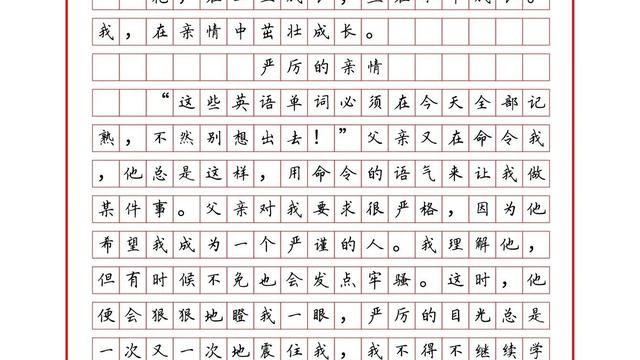 我，在亲情中茁壮成长。
严厉的亲情
“这些英语单词必须在今天全部记
熟，不然别想出去！”父亲又在命令我
，他总是这样，用命令的语气来让我做
某件事。父亲对我要求很严格，因为他
希望我成为一个严谨的人。我理解他，
但有时候不免也会发点牢骚。这时，他
便会狠狠地瞪我一眼，严厉的目光总是
一次又一次地震住我，我不得不继续学